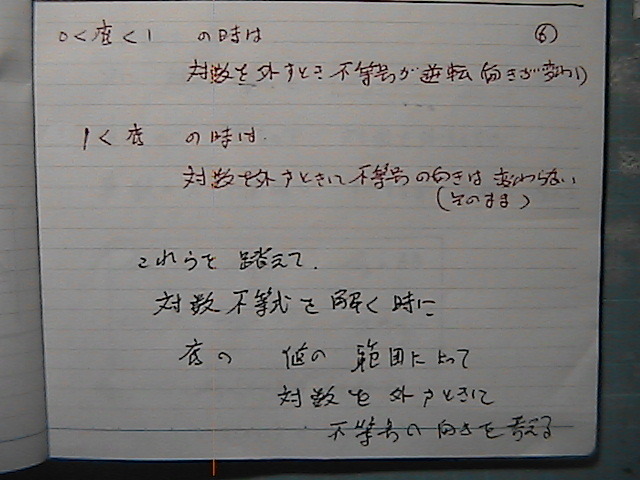 0<底<1 の時は ⑥
対数を外すとき不等号が逆転 向きが変わり
1<底 の時は.
対数を外すときに不等号の向きは変わらない
(そのまま)
これらを踏まえて.
対数不等式を解く時に
底の 値の 範囲によって
対数を外すときに
不等号の向きを考える